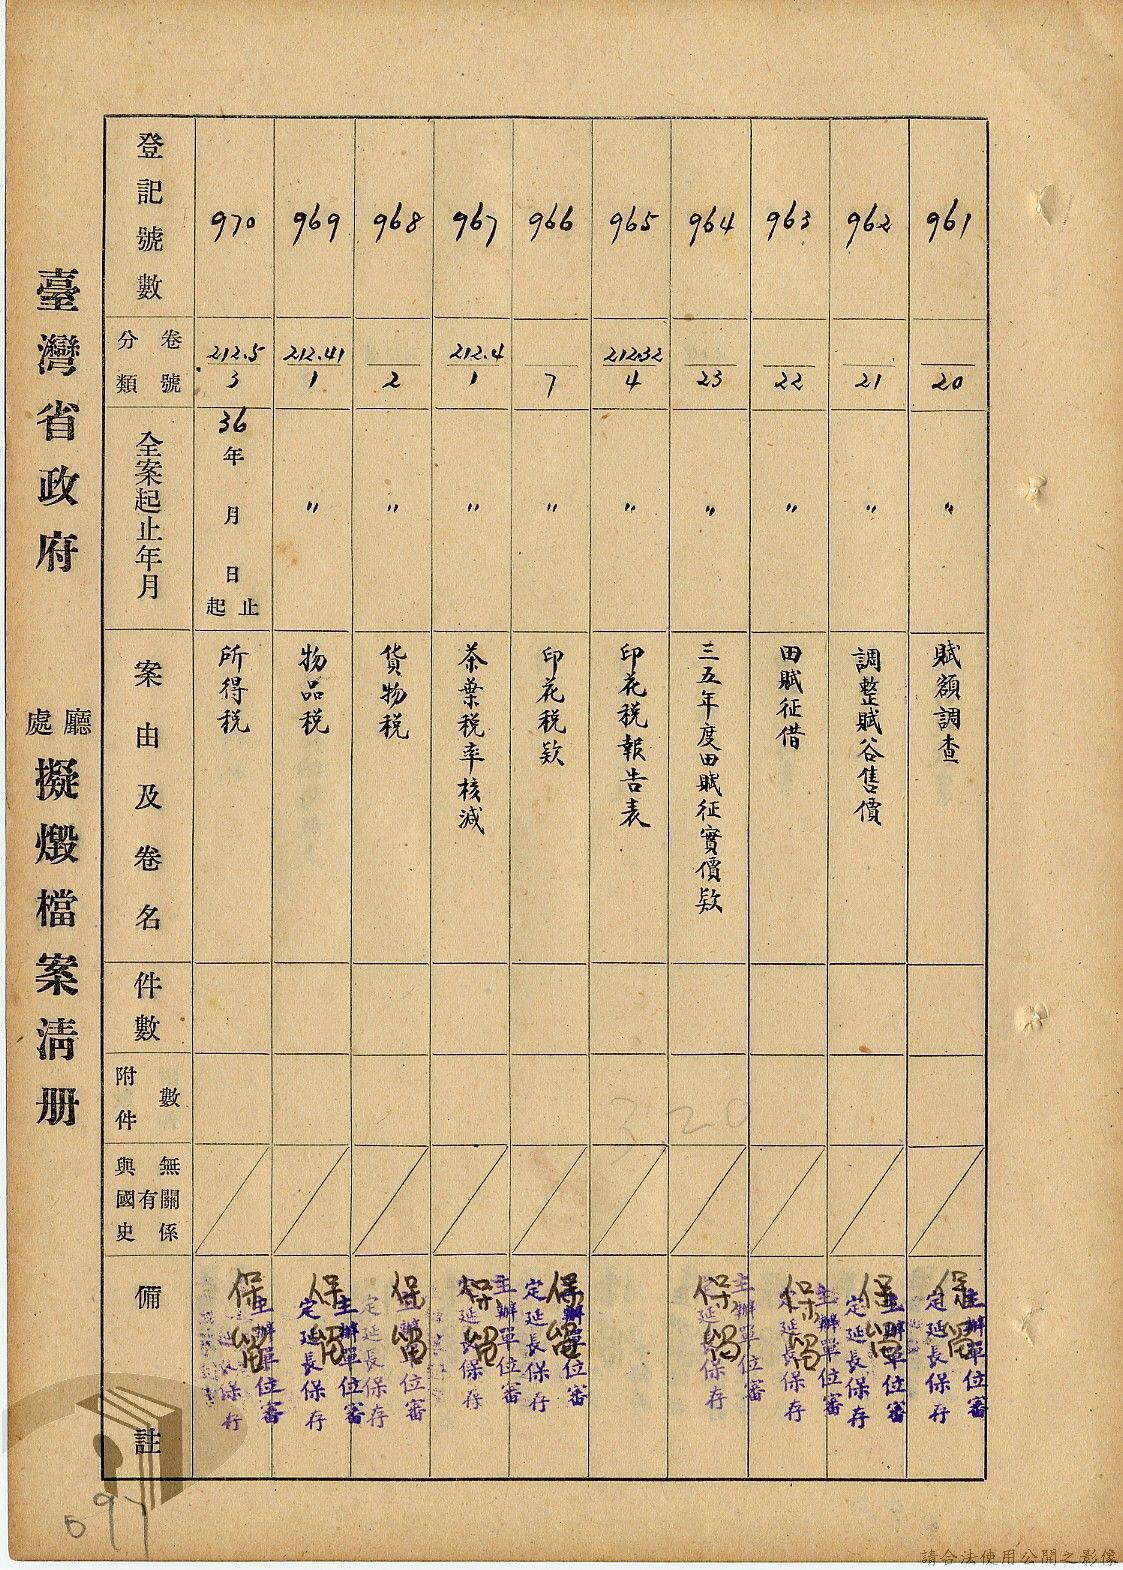 登記號數
卷號分類
全案起止年月
案由及卷名
件數
附件數
與國史有無關係
備註
961
20
〃
賦額調查
保留
主辦單位審定延長保存
962
21
〃
調整賦谷售價
保留
主辦單位審定延長保存
963
22
〃
田賦征借
保留
主辦單位審定延長保存
964
23
〃
三五年度田賦征實價欵
保留
主辦單位審定延長保存
965
212.32
4
〃
印花稅報告表
966
7
〃
印花稅欵
保留
主辦單位審定延長保存
967
212.4
1
〃
茶葉稅率核減
保留
主辦單位審定延長保存
968
2
〃
貨物稅
保留
主辦單位審定延長保存
969
212.41
1
〃
物品稅
保留
主辦單位審定延長保存
970
212.5
3
36年 月 日起止
所得稅
保留
主辦單位審定延長保存
臺灣省政府 廳處擬燬檔案清册
320
097
請合法使用公開之影像